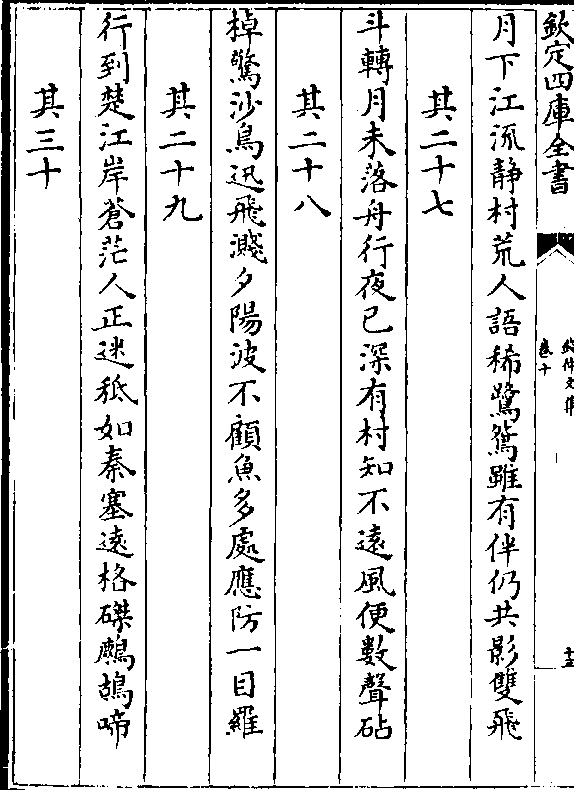 欽定四庫全書
錢仲文集
卷十
月下江流静村荒人語稀鷺鷥雖有伴仍共影雙飛
其二十七
斗轉月未落舟行夜已深有村知不遠風便數聲砧
其二十八
棹驚沙鳥迅飛濺夕陽波不顧魚多處應防一目羅
其二十九
行到楚江岸蒼茫人正迷秪如秦塞遠格磔鷓鴣啼
其三十